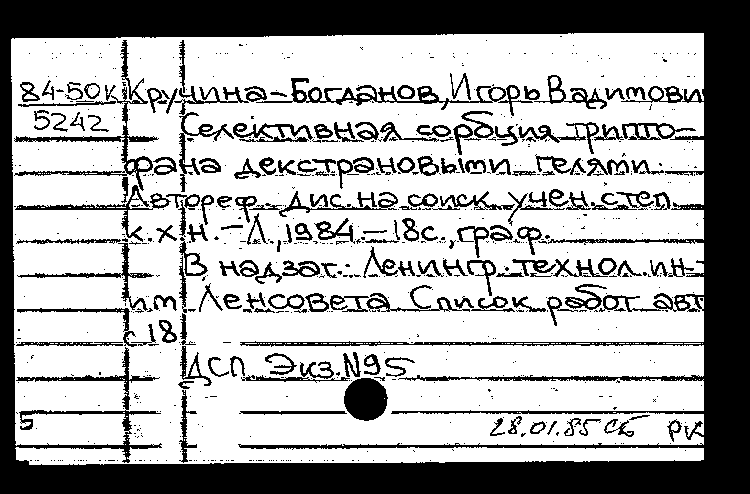 84-50к Кручина-Богданов, Игорь Вадимови
5242 Селективная сорбция трипто-
фана декстрановыми гелями.
Автореф. дис. на соиск. учен. степ.
к.х.н. - Л., 1984. - 18с., граф.
В надзаг.: Ленингр. технол. ин-т
им. Ленсовета. Список работ авт
с. 18
ДСП. Экз. N95
5 28.01.85 СБ РК